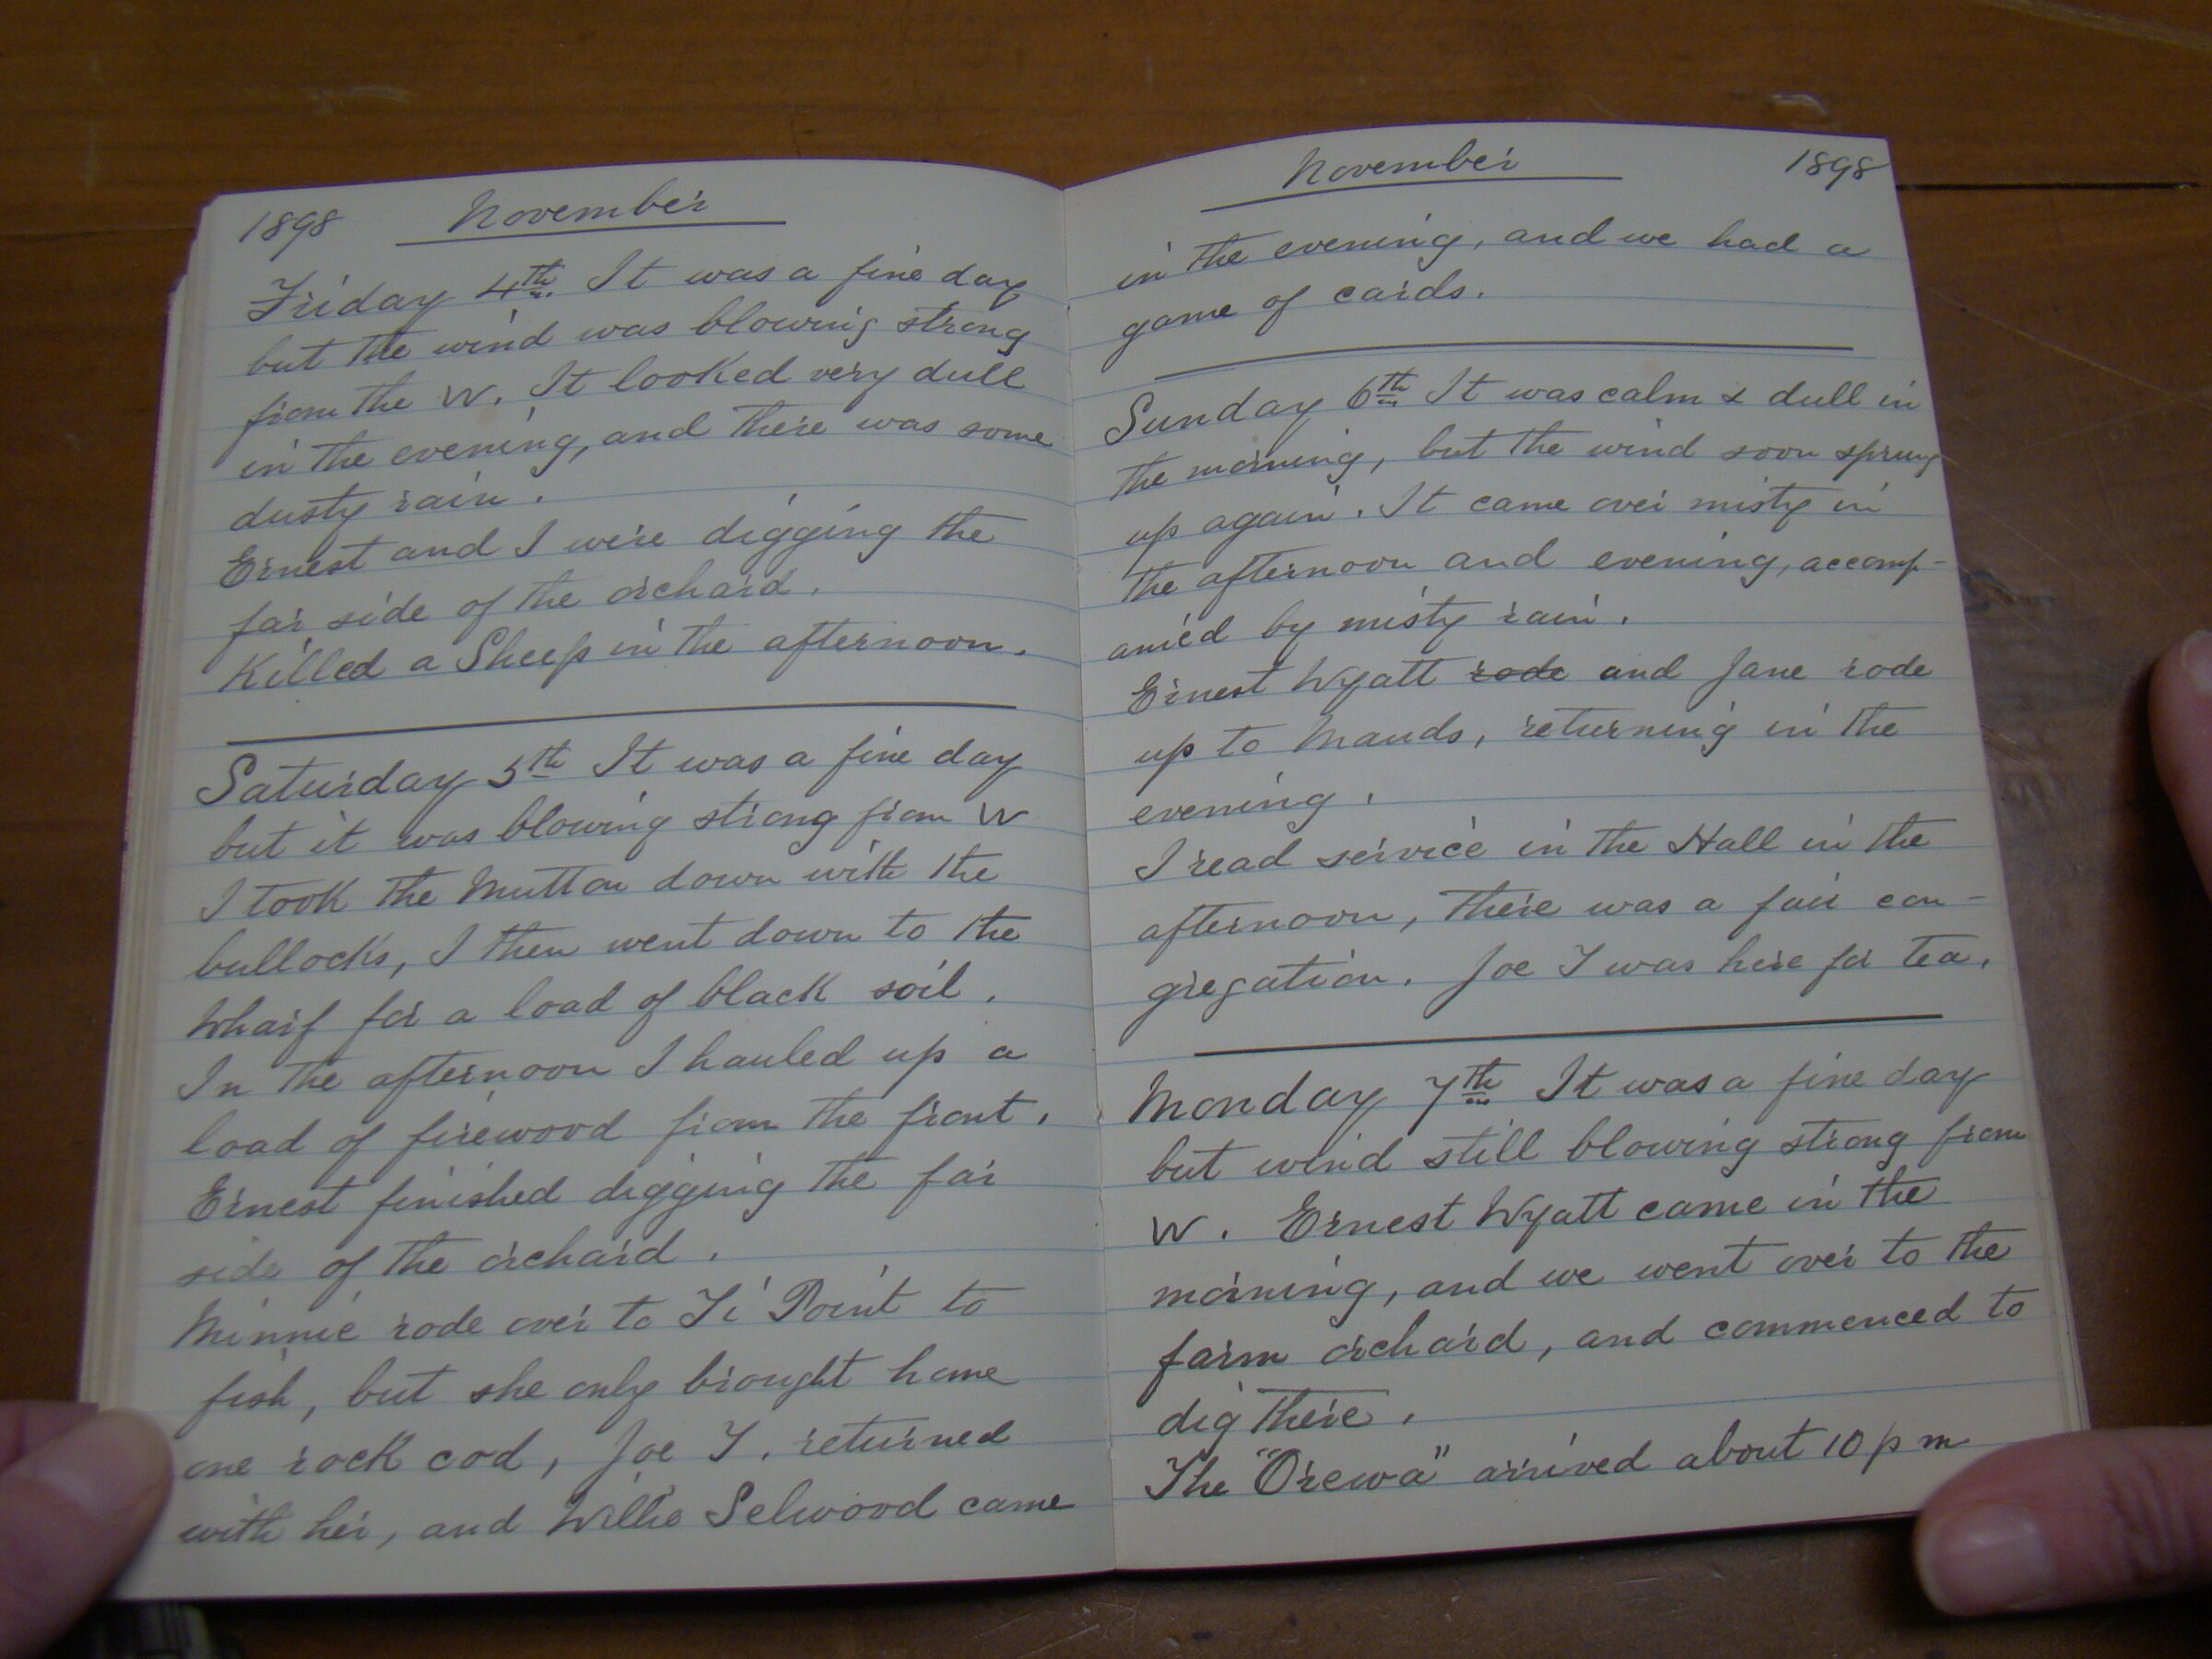 1898 November
Friday 4th. It was a fine day
but the wind was blowing strong
from the W. It looked very dull
in the evening, and there was some
dusty rain.
Ernest and I were digging the
far side of the orchard.
Killed a Sheep in the afternoon.
Saturday 5th It was a fine day
but it was blowing strong from W
I took the Mutton down with the
bullocks, I then went down to the
Wharf for a load of black soil.
In the afternoon I hauled up a
load of firewood from the front.
Ernest finished digging the far
side of the orchard.
Minnie rode over to Ti Point to
fish, but she only brought home
one rock cod, Joe T. returned
with her, and Willie Selwood came
November 1898
in the evening, and we had a
game of cards.
Sunday 6th It was calm & dull in
the morning, but the wind soon sprung
up again. It came over misty in
the afternoon and evening, accomp-
anied by misty rain.
Ernest Wyatt rode and Jane rode
up to Mauds, returning in the
evening.
I read service in the Hall in the
afternoon, there was a fair con-
gregation. Joe T was here for tea.
Monday 7th It was a fine day
but wind still blowing strong from
W. Ernest Wyatt came in the
morning, and we went over to the
farm orchard, and commenced to
dig there.
The "Orewa" arrived about 10 p m